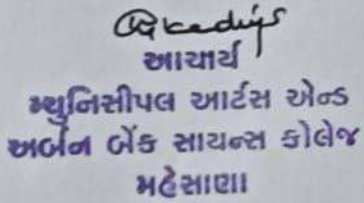 આચાર્ય
મ્યુનિસીપલ આર્ટસ એન્ડ
અર્બન બેંક સાયન્સ કોલેજ
મહેસાણા